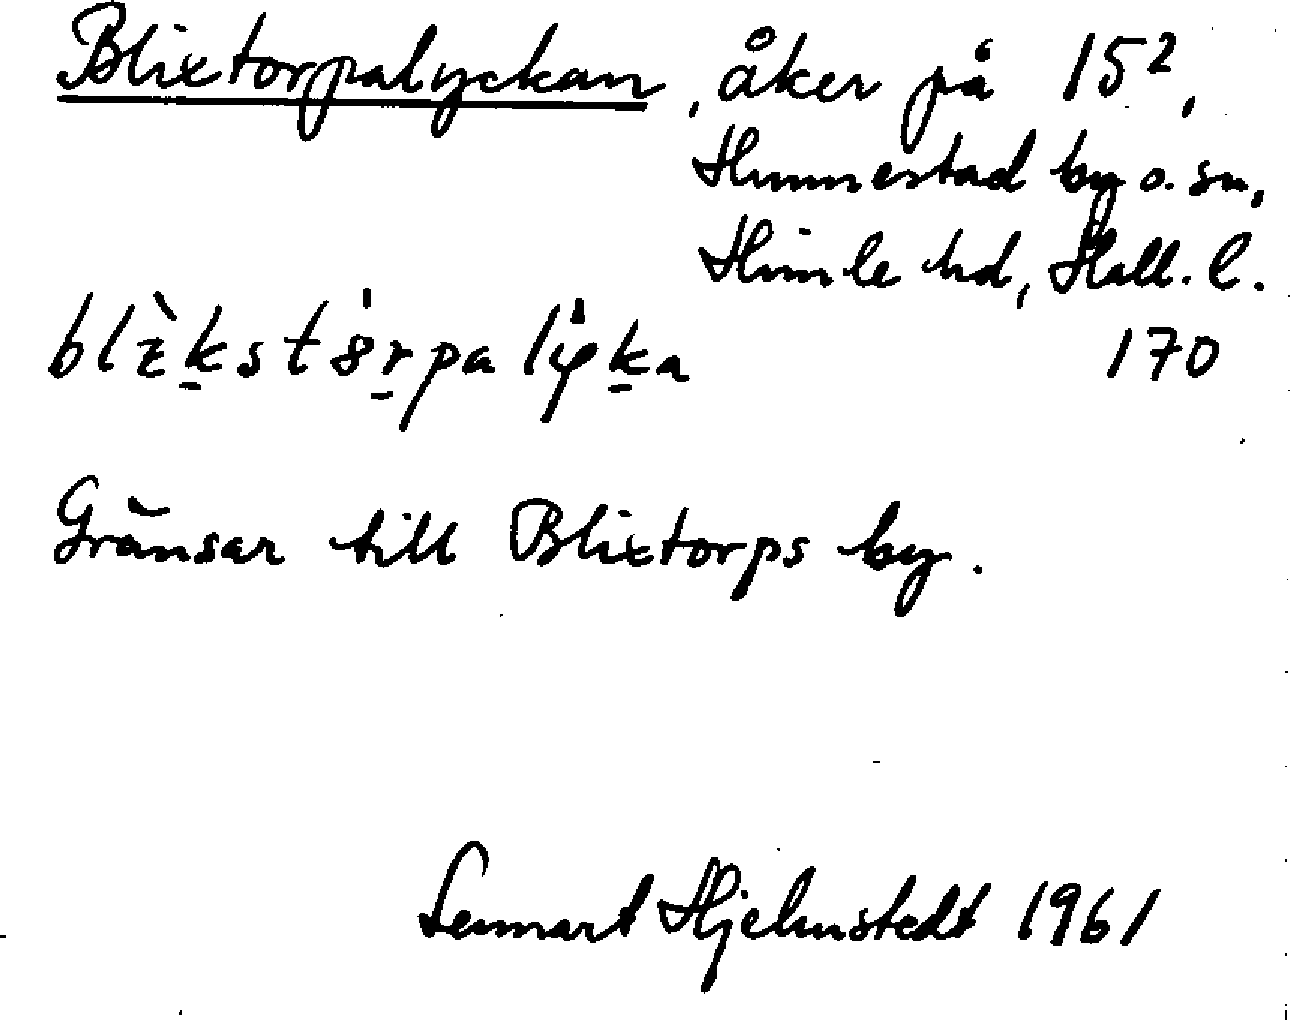 Blixtorpalyckan, åker på 15²,
Hunnestad by o. sn,
Himle hd, Hall. l.
170
Gränsar till Blixtorps by.
Lennart Hjelmstedt 1961